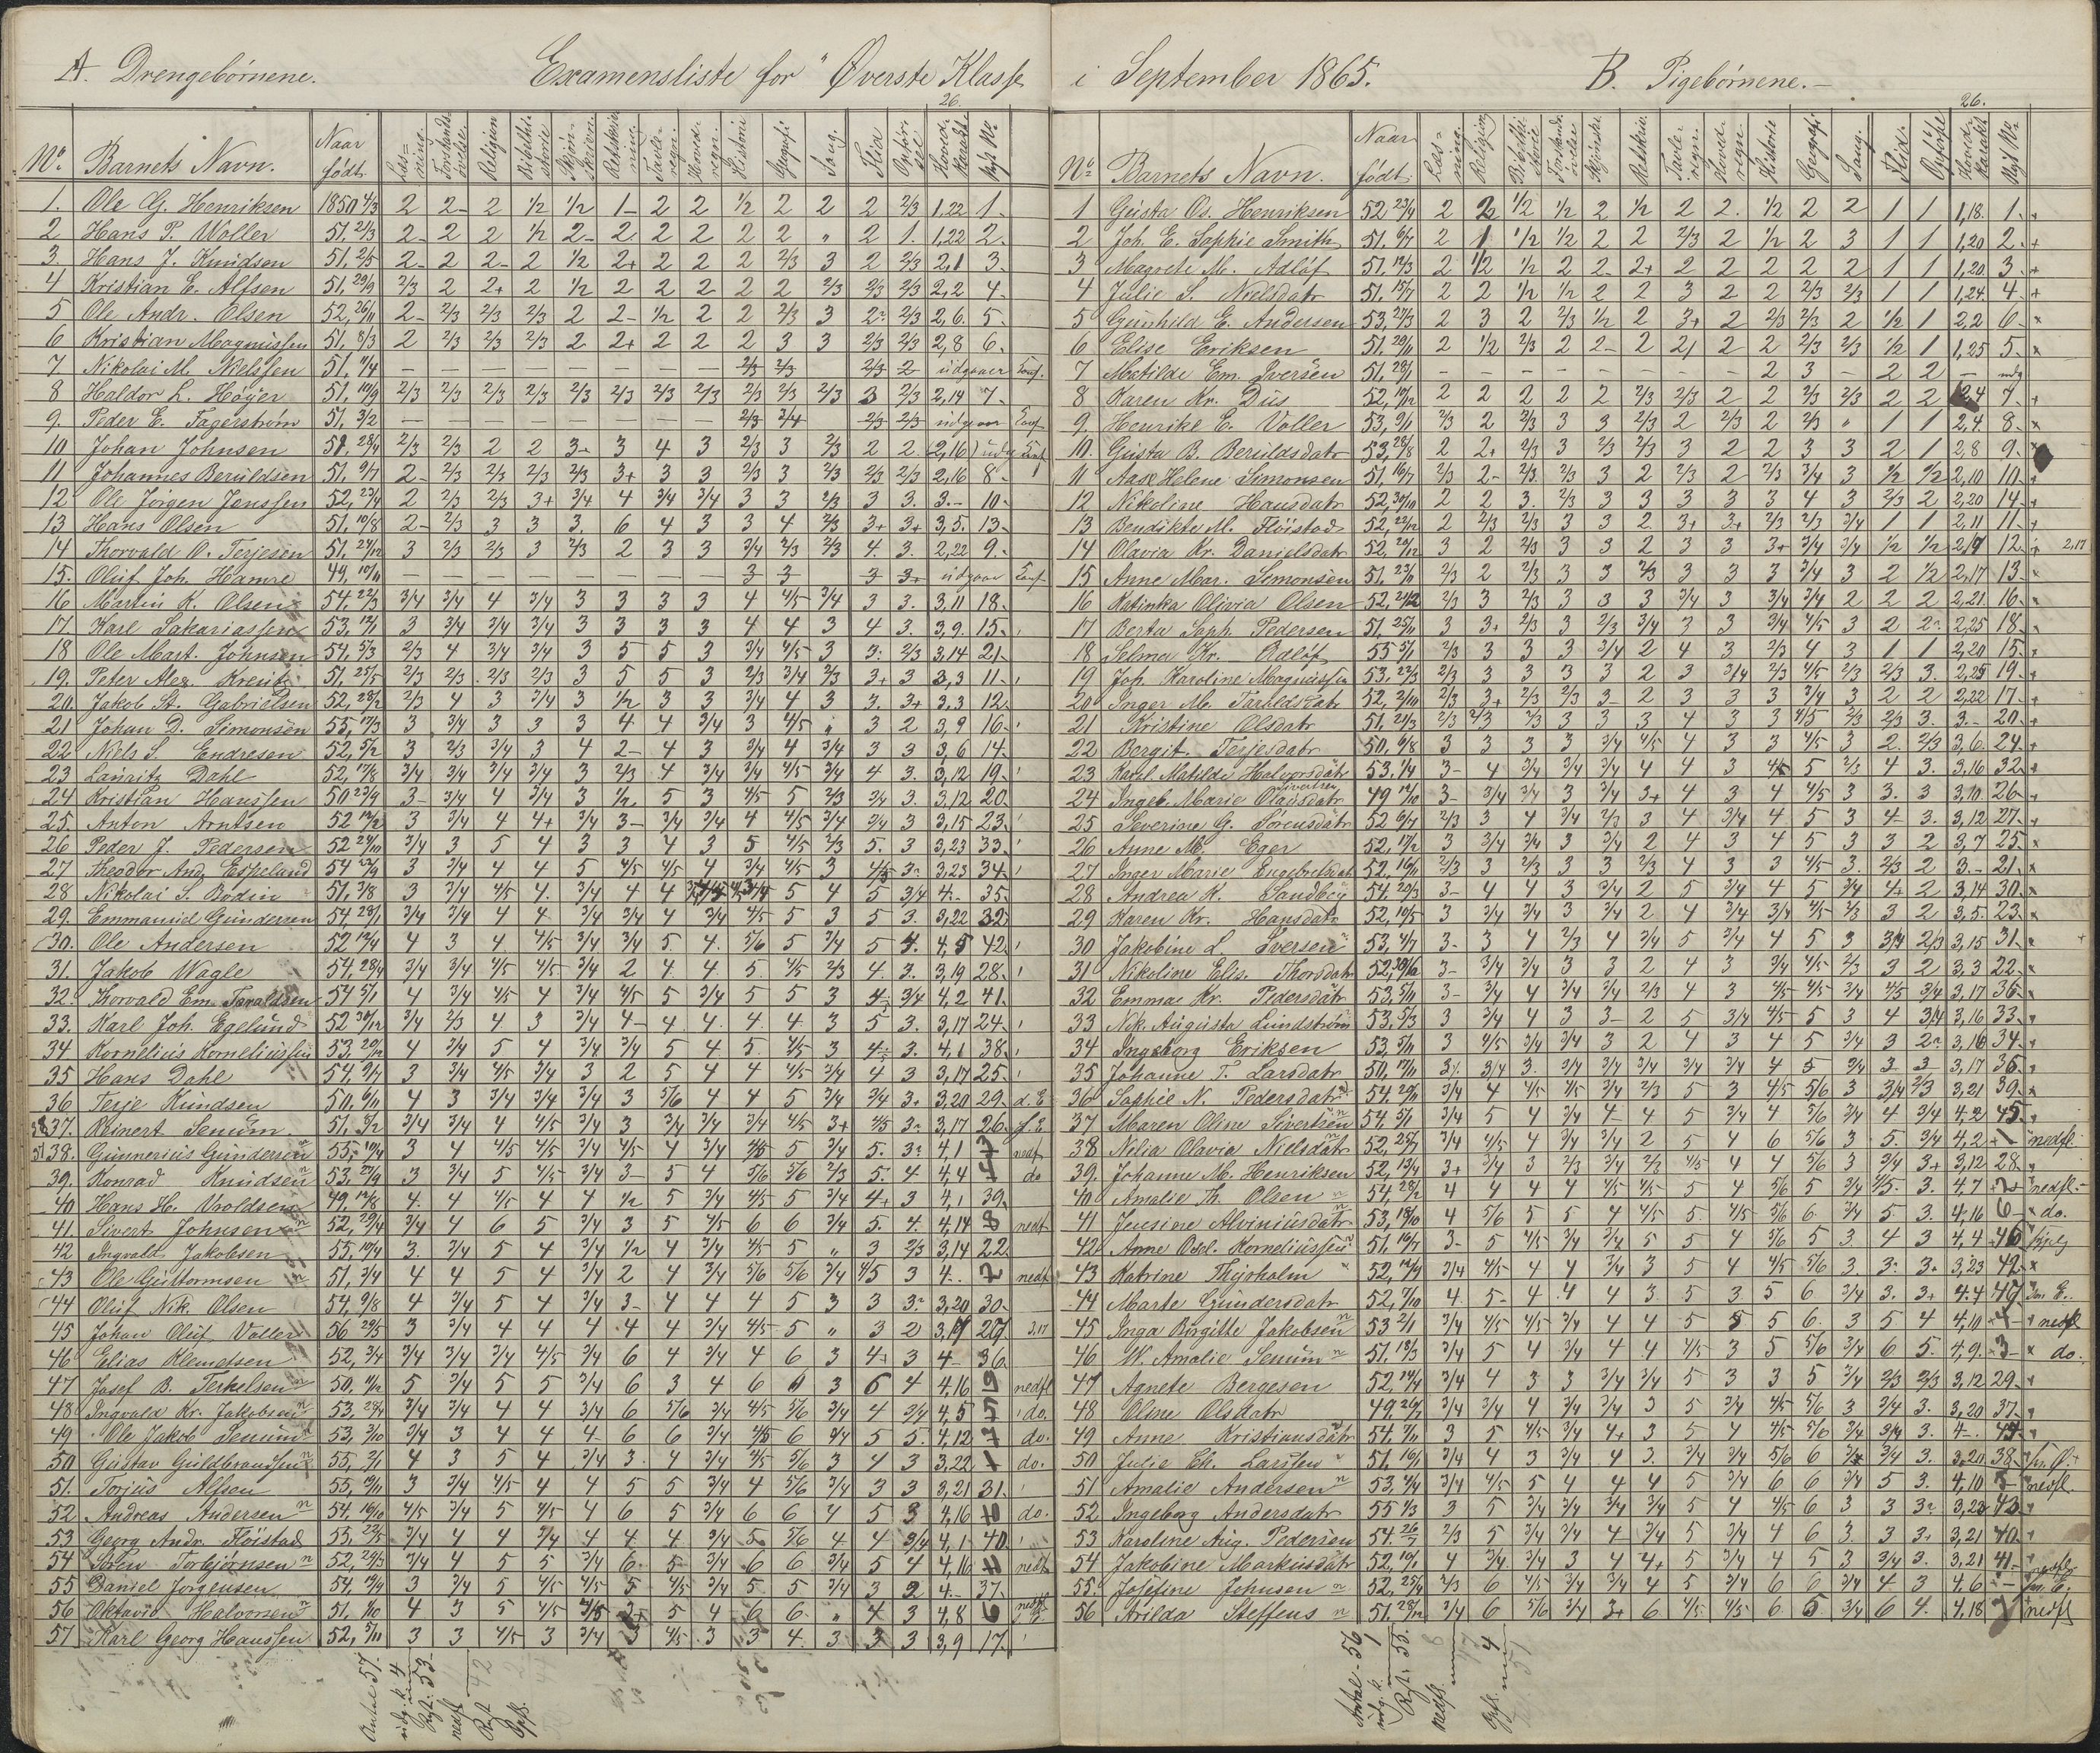 A. Drengebørnene. Examensliste for Øverste Klasse i September 1865. B. Pigebørnene.
No. Barnets Navn. Naar født. Religion Historie Sang. Flid
1. Ole G. Henriksen 1850 4/3 2 2- 2 1/2 1/2 1- 2 2 1/2 2 2 2 2/3 1,22 1.
2 Hans P. Voller 51. 2/3 2- 2 2 1/2 2- 2 2 2 2 2 " 2 1. 1,22 2.
3. Hans J. Knudsen 51. 2/5 2- 2 2- 2 1/2 2+ 2 2 2 2/3 3 2 2/3 2,1 3.
4 Kristian E. Alfsen 51. 29/9 2/3 2 2+ 2 1/2 2 2 2 2 2 2/3 2/3 2/3 2,2 4.
5 Ole Andr. Olsen 52, 26/11 2- 2/3 2/3 2/3 2 2- 1/2 2 2 2/3 3 2 2/3 2,6. 5.
6 Kristian Magnussen 51. 8/3 2 2/3 2/3 2/3 2 2+ 2 2 2 3 3 2/3 2/3 2,8 6.
7. Nikolai M. Nielssen 51. 11/4 2/3 2/3 2/3 2 udgaaer
8 Haldor L. Høyer 51, 10/9 2/3 2/3 2/3 2/3 2/3 2/3 2/3 2/3 2/3 2/3 2/3 3 2/3 2,14 7.
9. Peder E. Fagerstrøm 51, 3/2 2/3 3/4 2/3 2/3 udgaaer
10 Johan Johnsen 51. 28/4 2/3 2/3 2 2 3- 3 4 3 2/3 3 2/3 2 2. (2,16)
11 Johannes Beruldsen 51. 9/7 2- 2/3 2/3 2/3 2/3 3+ 3 3 2/3 3 2/3 2/3 2/3 2,16 8.
12 Ole Jørgen Jenssen 52, 23/4 2 2/3 2/3 3+ 3/4 4 3/4 3/4 3 3 2/3 3 3. 3.- 10.
13 Hans Olsen 51, 10/8 2- 2/3 3 3 3 6 4 3 3 4 2/3 3+ 3+ 3,5. 13.
14 Thorvald O. Terjesen 51, 24/12 3 2/3 2/3 3 2/3 2 3 3 3/4 2/3 2/3 4. 3. 2,22 9.
15. Oluf Joh. Hamre 49, 10/11 3 3 3 3+ udgaaer
16 Martin K. Olsen 54, 22/3 3/4 3/4 4 3/4 3 3 3 3 4 4/5 3/4 3 3. 3,11 18.
17. Karl Sakariassen 53, 3 3/4 3/4 3/4 3 3 3 3 4 4 3 4 3. 3,9. 15.
18 Ole Mart. Johnsen 54. 5/3 2/3 4 3/4 3/4 3 5 5 3 3/4 4/5 3 3. 2/3 3,14 21.
19. Peter Alex. Kreutz 51, 25/5 2/3 2/3 2/3 2/3 3 5 5 3 2/3 3/4 2/3 3+ 3 3,3 11.
20. Jakob St. Gabrielsen 52, 28/2 2/3 4 3 3/4 3 1/2 3 3 3/4 4 3 3. 3+ 3.3 12.
21 Johan D. Simonsen 55, 17/3 3 3/4 3 3 3 4 4 3/4 3 4/5 " 3 2 3,9 16.
22 Nils S. Endresen 52, 5/2 3 2/3 3/4 3 4 2- 4 3 3/4 4 3/4 3 3 3,6 14.
23 Lauritz Dahl 52, 17/8 3/4 3/4 3/4 3/4 3 2/3 4 3/4 3/4 4/5 3/4 4 3. 3,12 19.
24 Kristian Hanssen 50 23/9 3- 3/4 4 3/4 3 1/2 5 3 4/5 5 2/3 3/4 3. 3,12 20.
25. Anton Arntsen 52 3 3/4 4 4+ 3/4 3- 3/4 3/4 4 4/5 3/4 3/4 3 3,15 23.
26 Peder J. Pedersen 52 29/10 3/4 3 5 4 3 3 4 3 5 4/5 2/3 5. 3 3,23 33.
27 Theodor And. Espeland 54 3 3/4 4 4 5 4/5 4/5 4 3/4 4/5 3 4/5 3. 3,23 34.
28 Nikolai S. Bodin 51, 3/8 3 3/4 4/5 4. 3/4 4 4 5 4 5 3/4 4.- 35.
29. Emmanuel Gundersen 54 28/1 3/4 3/4 4 4 3/4 3/4 4 3/4 4/5 5 3 5 3. 3,22 32.
30. Ole Andersen 52 12/4 4 3 4. 4/5 3/4 3/4 5 4. 5/6 5 3/4 5 4. 4,5 42.
31. Jakob Wagle 54, 28/4 3/4 3/4 4/5 4/5 3/4 2 4. 4. 5. 4/5 2/3 4. 3. 3,19 28.
32. Thorvald Em. Taraldsen 54 5/1 4 3/4 4/5 4 3/4 4/5 5 3/4 5 5 3 4- 3/4 4,2 41.
33. Karl Joh. Egelund 52 30/12 3/4 2/3 4. 3 3/4 4- 4. 4. 4. 4. 3 5 3. 3,17 24.
34 Kornelius Korneliussen 53, 20/12 4 3/4 5 4 3/4 3/4 5 4. 5. 4/5 3 4 3. 4,1 38.
35 Hans Dahl 54, 9/7 3 3/4 4/5 3/4 3 2 5 4 4 4/5 3/4 4 3 3,17 25.
36 Terje Knudsen 50. 6/11 4 3 3/4 3/4 3/4 3 5/6 4 4 5 3/4 3/4 3+ 3,20 29.
37. Reinert Senum 51, 5/2 3/4 3/4 4 4/5 3/4 3 3/4 3/4 3/4 4/5 3+ 4/5 3 3,17 26.
38. Gunnerius Gunderson 55, 10/4 3 4 4/5 4/5 3/4 4/5 4 3/4 4/5 5 3/4 5. 3 4,1 nedf.
39. Konrad Knudsen 53, 27/9 3 3/4 5 4/5 3/4 3- 5 4 5/6 5/6 2/3 5. 4 4,4 do
40 Hans H. Vroldsen 49, 17/8 4. 4 4/5 4 4 1/2 5 3/4 4/5 5 3/4 4+ 3 4,1 39.
41. Sivert Johnsen 52, 29/4 3/4 4 6 5 3/4 3 5 4/5 6 6 3/4 5. 4. 4,14 8 nedf
42 Ingvald Jakobsen 55, 10/4 3. 3/4 5 4 3/4 1/2 4 3/4 4/5 5 " 3 2/3 3,14 22.
43 Ole Guttormsen 51, 3/4 4 4 5 4 3/4 2 4 3/4 5/6 5/6 3/4 4/5 3 4.- 2 nedf
44 Oluf Nik. Olsen 54, 9/8 4 3/4 5 4 3/4 3- 4 4 4 5 3 3 3. 3,20 30.
45 Johan Oluf Voller 56 29/5 3 3/4 4 4 4 4 4 3/4 4/5 5 " 3 2 3,17 27. 3,17
46 Elias Klemetsen 52, 3/4 3/4 3/4 3/4 4/5 3/4 6 4 3/4 4 6 3 4+ 3 4- 36.
47 Josef B. Terkelsen 50, 5 3/4 5 5 3/4 6 3 4 6 3 6 4 4,16 9 nedfl
48 Ingvald Kr. Jakobsen 53, 28/4 3/4 3/4 4 4 3/4 6 5/6 3/4 4/5 5/6 3/4 4 3/4 4,5 5 do.
49 Ole Jakob Senum 53, 3/10 3/4 3 4 4 4- 6 6 3/4 4/5 6 3/4 5 5. 4,12 7 do.
50 Gustav Guldbrandsen 55, 2/1 4 3 5 4 3/4 3. 4 3/4 4/5 5/6 3 4 3 3,22 1 do.
51. Torjus Alfsen 55, 19/11 3 3/4 4/5 4 4 5 5 3/4 4 5/6 3/4 3 3 3,21 31.
52 Andreas Andersen 54, 16/10 4/5 3/4 5 4/5 4 6 5 3/4 6 6 4 5 3 4,16 10 do.
53 Georg Andr. Fløistad 55, 22/5 3/4 4 4 3/4 4 4 4 3/4 5 5/6 4 4 3/4 4,1 40.
54 Sven Torbjørnsen 52, 29/3 3/4 4 5 5 3/4 6 5 3/4 6 6 3/4 5 4 4,16 11 nedf
55 Daniel Jørgensen 54, 19/9 3 3/4 5 4/5 4/5 5 4/5 3/4 5 5 3/4 3 2 4.- 37.
56 Oktavio Halvorsen 51, 1/10 4 3 5 4/5 4/5 5 4 6 6. " 4 3 4,8 6 nedfl
57 Karl Georg Hanssen 52, 5/11 3 3 4/5 3 3/4 3 4/5 3 3 4. 3 3 3. 3,9 17.
Antal 57.
udg. k. 4
Rest. 53
nedfl
No. Barnets Navn. Naar født. Læsning. Religion Historie Sang. Flid
1 Gusta Os. Henriksen 52 23/4 2 2 1/2 1/2 2 1/2 2 2. 1/2 2 2 1 1 1,18. 1.
2 Joh. E. Sophie Smith 51. 6/7 2 1 1/2 1/2 2 2 2/3 2 1/2 2 3 1 1 1,20 2.
3 Magrete M. Adløf 51. 12/3 2 1/2 1/2 2 2- 2+ 2 2 2 2 2 1 1 1,20. 3.
4 Julie S. Nielsdatr 51. 15/7 2 2 1/2 1/2 2 2 3 2 2 2/3 2/3 1 1 1,24. 4.
5 Gunhild E. Andersen 53, 27/3 2 3 2 2/3 1/2 2 3+ 2 2/3 2/3 2 1/2 1 2,2 6.
6 Elise Eriksen 51. 29/11 2 1/2 2/3 2 2- 2 2 2 2/3 2/3 1/2 1 1,25 5.
7 Matilde Em. Iversen 51. 28/1 2 3 - 2 2 - udg
8 Karen Kr. Dus 52, 19/12 2 2 2 2 2 2/3 2/3 2 2 2/3 2/3 2 2 2,4 7.
9. Henrike E. Voller 53, 9/11 2/3 2 2/3 3 3 2/3 2 2/3 2 2/3 " 1 1 2,4. 8.
10. Gusta B. Beruldsdatr 53, 28/8 2 2+ 2/3 3 2/3 2/3 3 2 2 3 3 2 1 2,8 9.
11 Aase Helene Simonsen 51, 16/7 2/3 2- 2/3 2/3 3 2 2/3 2 2/3 3/4 3 1/2 1/2 2,10 10.
12 Nikoline Hansdatr 52, 30/10 2 2 3. 2/3 3 3 3 3 3 4 3 2/3 2 2,20 14.
13 Bendikte M. Fløistad 52, 22/12 2 2/3 2/3 3 3 2 3+ 3+ 2/3 2/3 3/4 1 1 2,11 11.
14 Olavia Kr. Danielsdatr 52, 20/12 3 2 2/3 3 3 2 3 3 3+ 3/4 3/4 1/2 1/2 2,17 12. 2,17
15 Anne Mar. Simonsen 51. 23/11 2/3 2 2/3 3 3 2/3 3 3 3 3/4 3 2 1/2 2,17 13.
16 Katinka Olivia Olsen 52, 24/12 2/3 3 2/3 3 3 3 3/4 3 3/4 3/4 2 2 2 2,21. 16.
17 Berta Soph. Pedersen 51. 25/11 3 3+ 2/3 3 2/3 3/4 3 3 3/4 4/5 3 2 2 2,25 18.
18 Selma Kr. Adløf 55 5/1 2/3 3 3 3 3/4 2 4 3 2/3 4 3 1 1 2,20 15.
19 Joh. Karoline Magnussen 53. 22/3 2/3 3 3 3 3 2 3 3/4 2/3 4/5 2/3 2/3 3. 2,25 19.
20 Inger M. Taraldsdatr 52, 2/10 2/3 3+ 2/3 2/3 3- 2 3 3 3 3/4 3 2 2 2,22 17.
21 Kristine Olsdatr 51, 21/3 2/3 2/3 2/3 3 3 3 4 3 3 4/5 2/3 2/3 3. 3.- 20.
22 Bergit. Terjesdatr 50, 6/8 3 3 3 3 3/4 4/5 4 3 3 4/5 3 2. 2/3 3,6. 24.
23 Karel. Matilde Halvorsdatr 53. 1/4 3- 4 3/4 3/4 3/4 4 4 3 4/5 5 2/3 4 3. 3,16 32.
24 Ingeb. Marie Olausdatr 49 12/10 3- 3/4 3/4 3 3/4 3+ 4 3 4 4/5 3 3. 3 3,10. 26.
25 Severine G. Sørensdatr 52 6/7 2/3 3 4 3/4 2/3 3 4 3/4 4 5 3 4 3. 3,12 27.
26 Anne M. Eger 52, 17/2 3 3/4 3/4 3 3/4 2 4 3 4 5 3 3 2 3,7 25.
27 Inger Marie Engebretsdatr 52, 16/11 2/3 3 2/3 3 3 2/3 4 3 3 4/5 3. 2/3 2 3.- 21.
28 Andrea K. Sandbøy 54, 20/3 3- 4 4 3 3/4 2 5 3/4 4 5 3/4 4+ 2 3,14 30.
29 Karen Kr. Hansdatr 52, 10/5 3 3/4 3/4 3 3/4 2 4 3/4 3/4 4/5 2/3 3 2 3,5. 23.
30 Jakobine L. Iversen 53, 4/7 3- 3 4 2/3 4 3/4 5 3/4 4 5 3 3/4 2/3 3,15 31.
31 Nikoline Elis. Thorsdatr 52, 3- 3/4 3/4 3 3 2 4 3 3/4 4/5 2/3 3 2 3,3 22.
32 Emma Kr. Pedersdatr 53, 5/11 3- 3/4 4 3/4 3/4 2/3 4 3 4/5 4/5 3/4 4/5 3/4 3,17 35.
33 Nik. Augusta Lundstrøm 53, 5/3 3 3/4 4 3 3- 2 5 3/4 4/5 5 3 4 3/4 3,16 33.
34 Ingeborg Eriksen 53, 5/11 3 4/5 3/4 3/4 3 2 4 3 4 5 3/4 3 2 3,16 34.
35 Johanne T. Larsdatr 50, 3/4 3. 3/4 3/4 3/4 3/4 3/4 4 5 3/4 3 3 3,17 36.
36 Sophie N. Pedersdatr 54. 20/11 3/4 4 4/5 4/5 3/4 2/3 5 3 4/5 5/6 3 3/4 2/3 3,21 39.
37 Maren Oline Sivertsen 54, 5/1 3/4 5 4 3/4 4 4 5 3/4 4 5/6 3/4 4 3/4 4,2 45.
38 Nelia Olavia Nielsdatr 52, 28/7 3/4 4/5 4 3/4 3/4 2 5 4 6 5/6 3 5. 3/4 4,2 1 nedfl.
39. Johanne M. Henriksen 52, 19/4 3+ 3/4 3 2/3 3/4 2/3 4/5 4 4 5/6 3 3/4 3+ 3,12 28.
40 Amalie Th. Olsen 54, 28/2 4 4 4 4 4/5 4/5 5 4 5/6 5 3/4 4/5. 3. 4,7 2 nedfl.
41 Jensine Alviniusdatr 53, 18/10 4 5/6 5 5 4 4/5 5 4/5 5/6 6 3/4 5 3. 4,16 6 do.
42 Anne Osel. Korneliussen 51, 16/7 3- 5 4/5 3/4 3/4 5 5 4 5/6 5 3 4 3 4,4 46
43 Katrine Thjøholm 52, 12/9 3/4 4/5 4 4 3/4 3 5 4 4/5 5/6 3 3. 3+ 3,23 42.
44 Marte Gundersdatr 52, 7/10 4. 5- 4 4 4 3. 5 3 5 6 3/4 3. 3+ 4.4 47
45 Inga Birgitte Jakobsen 53 2/1 3/4 4/5 4/5 3/4 4 4 5 5 5 6. 3 5 4 4,10 4 nedfl
46 W. Amalie Senum 51, 18/3 3/4 5 4 3/4 4 4 4/5 3 5 5/6 3/4 6 5. 4,9. 3 do.
47 Agnete Bergesen 52, 14/4 3/4 4 3 3 3/4 3/4 5 3 3 5 3/4 2/3 2/3 3,12 29.
48 Oline Olsdatr 49, 26/7 3/4 3/4 4 3/4 3/4 3 5 3/4 4/5 5/6 3 3/4 3. 3,20 37.
49 Anne Kristiansdatr 54. 7/11 3 5 4/5 3/4 4+ 3 5 4 4/5 5/6 3/4 3/4 3. 4.- 44.
50 Julie Eh. Larsen 51, 16/1 3/4 4 3 3/4 4 3. 3/4 3/4 5/6 6 3/4 3/4 3. 3,20. 38.
51 Amalie Andersen 53, 4/4 3/4 4/5 5 4 4 4 5 3/4 6 6 3/4 5 3. 4,10 5 nedfl.
52 Ingeborg Andersdatr 55 1/3 3 5 3/4 3/4 3/4 3/4 5 4 4/5 6 3 3 3 3,23 43.
53 Karoline Aug. Pedersen 54. 26/7 2/3 5 3/4 3/4 4 3/4 5 3/4 4 6 3 3 3. 3,21 40.
54 Jakobine Markusdatr 52, 19/1 4 3/4 3/4 3 4 4+ 5 3/4 4 5 3 3/4 3. 3,21 41.
55. Josefine Johnsen 52, 25/4 2/3 6 4/5 3/4 3/4 4 5 3/4 6 6 3/4 4 3 4,6
56 Arilda Steffens 51, 28/12 3/4 6 5/6 3/4 3+ 6 4/5 4/5 6 5 3/4 6 4. 4,18 7 nedfl
Antal 56
udg. k. 1
Rest. 55.
nedfl.